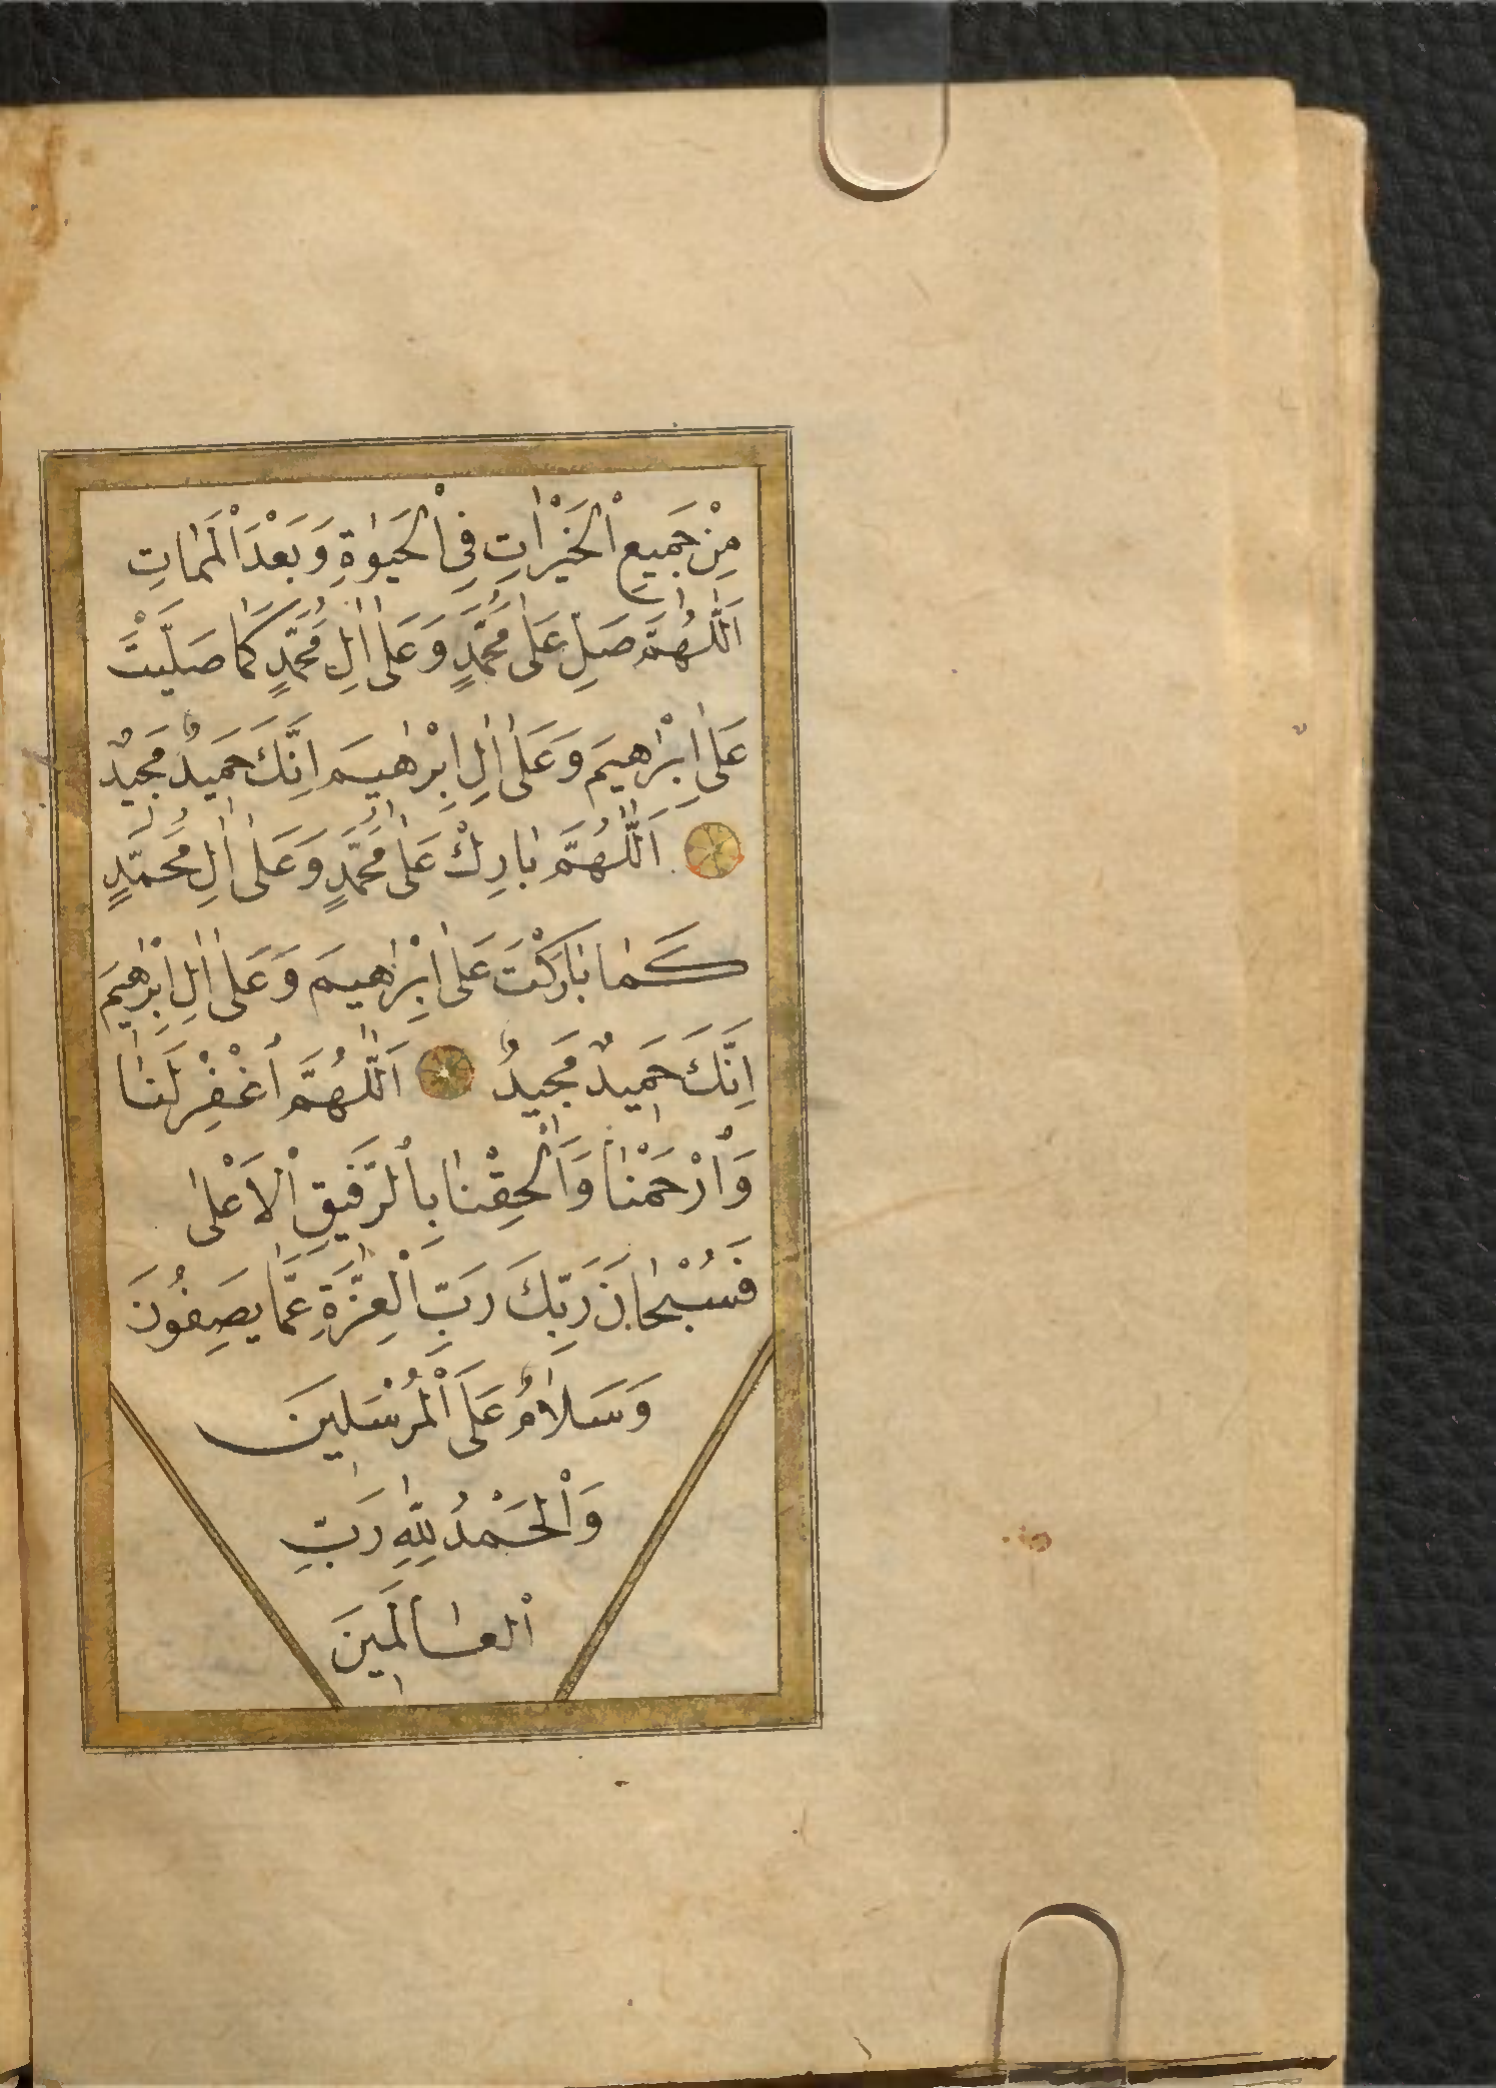 مِنْ جَمِيعِ الْخَيْرَاتِ فِي الْحَيٰوةِ وَبَعْدَ الْمَمَاتِ
اَللّٰهُمَّ صَلِّ عَلٰى مُحَمَّدٍ وَعَلٰى اٰلِ مُحَمَّدٍ كَمَا صَلَّيْتَ
عَلٰى اِبْرٰهِيمَ وَعَلٰى اٰلِ اِبْرٰهِيمَ اِنَّكَ حَمِيدٌ مَجِيدٌ
اَللّٰهُمَّ بَارِكْ عَلٰى مُحَمَّدٍ وَعَلٰى اٰلِ مُحَمَّدٍ
كَمَا بَارَكْتَ عَلٰى اِبْرٰهِيمَ وَعَلٰى اٰلِ اِبْرٰهِيمَ
اِنَّكَ حَمِيدٌ مَجِيدٌ اَللّٰهُمَّ اغْفِرْ لَنَا
وَارْحَمْنَا وَاَلْحِقْنَا بِالرَّفِيقِ الْاَعْلٰى
فَسُبْحَانَ رَبِّكَ رَبِّ الْعِزَّةِ عَمَّا يَصِفُونَ
وَسَلَامٌ عَلَى الْمُرْسَلِينَ
وَالْحَمْدُ لِلّٰهِ رَبِّ
الْعَالَمِينَ